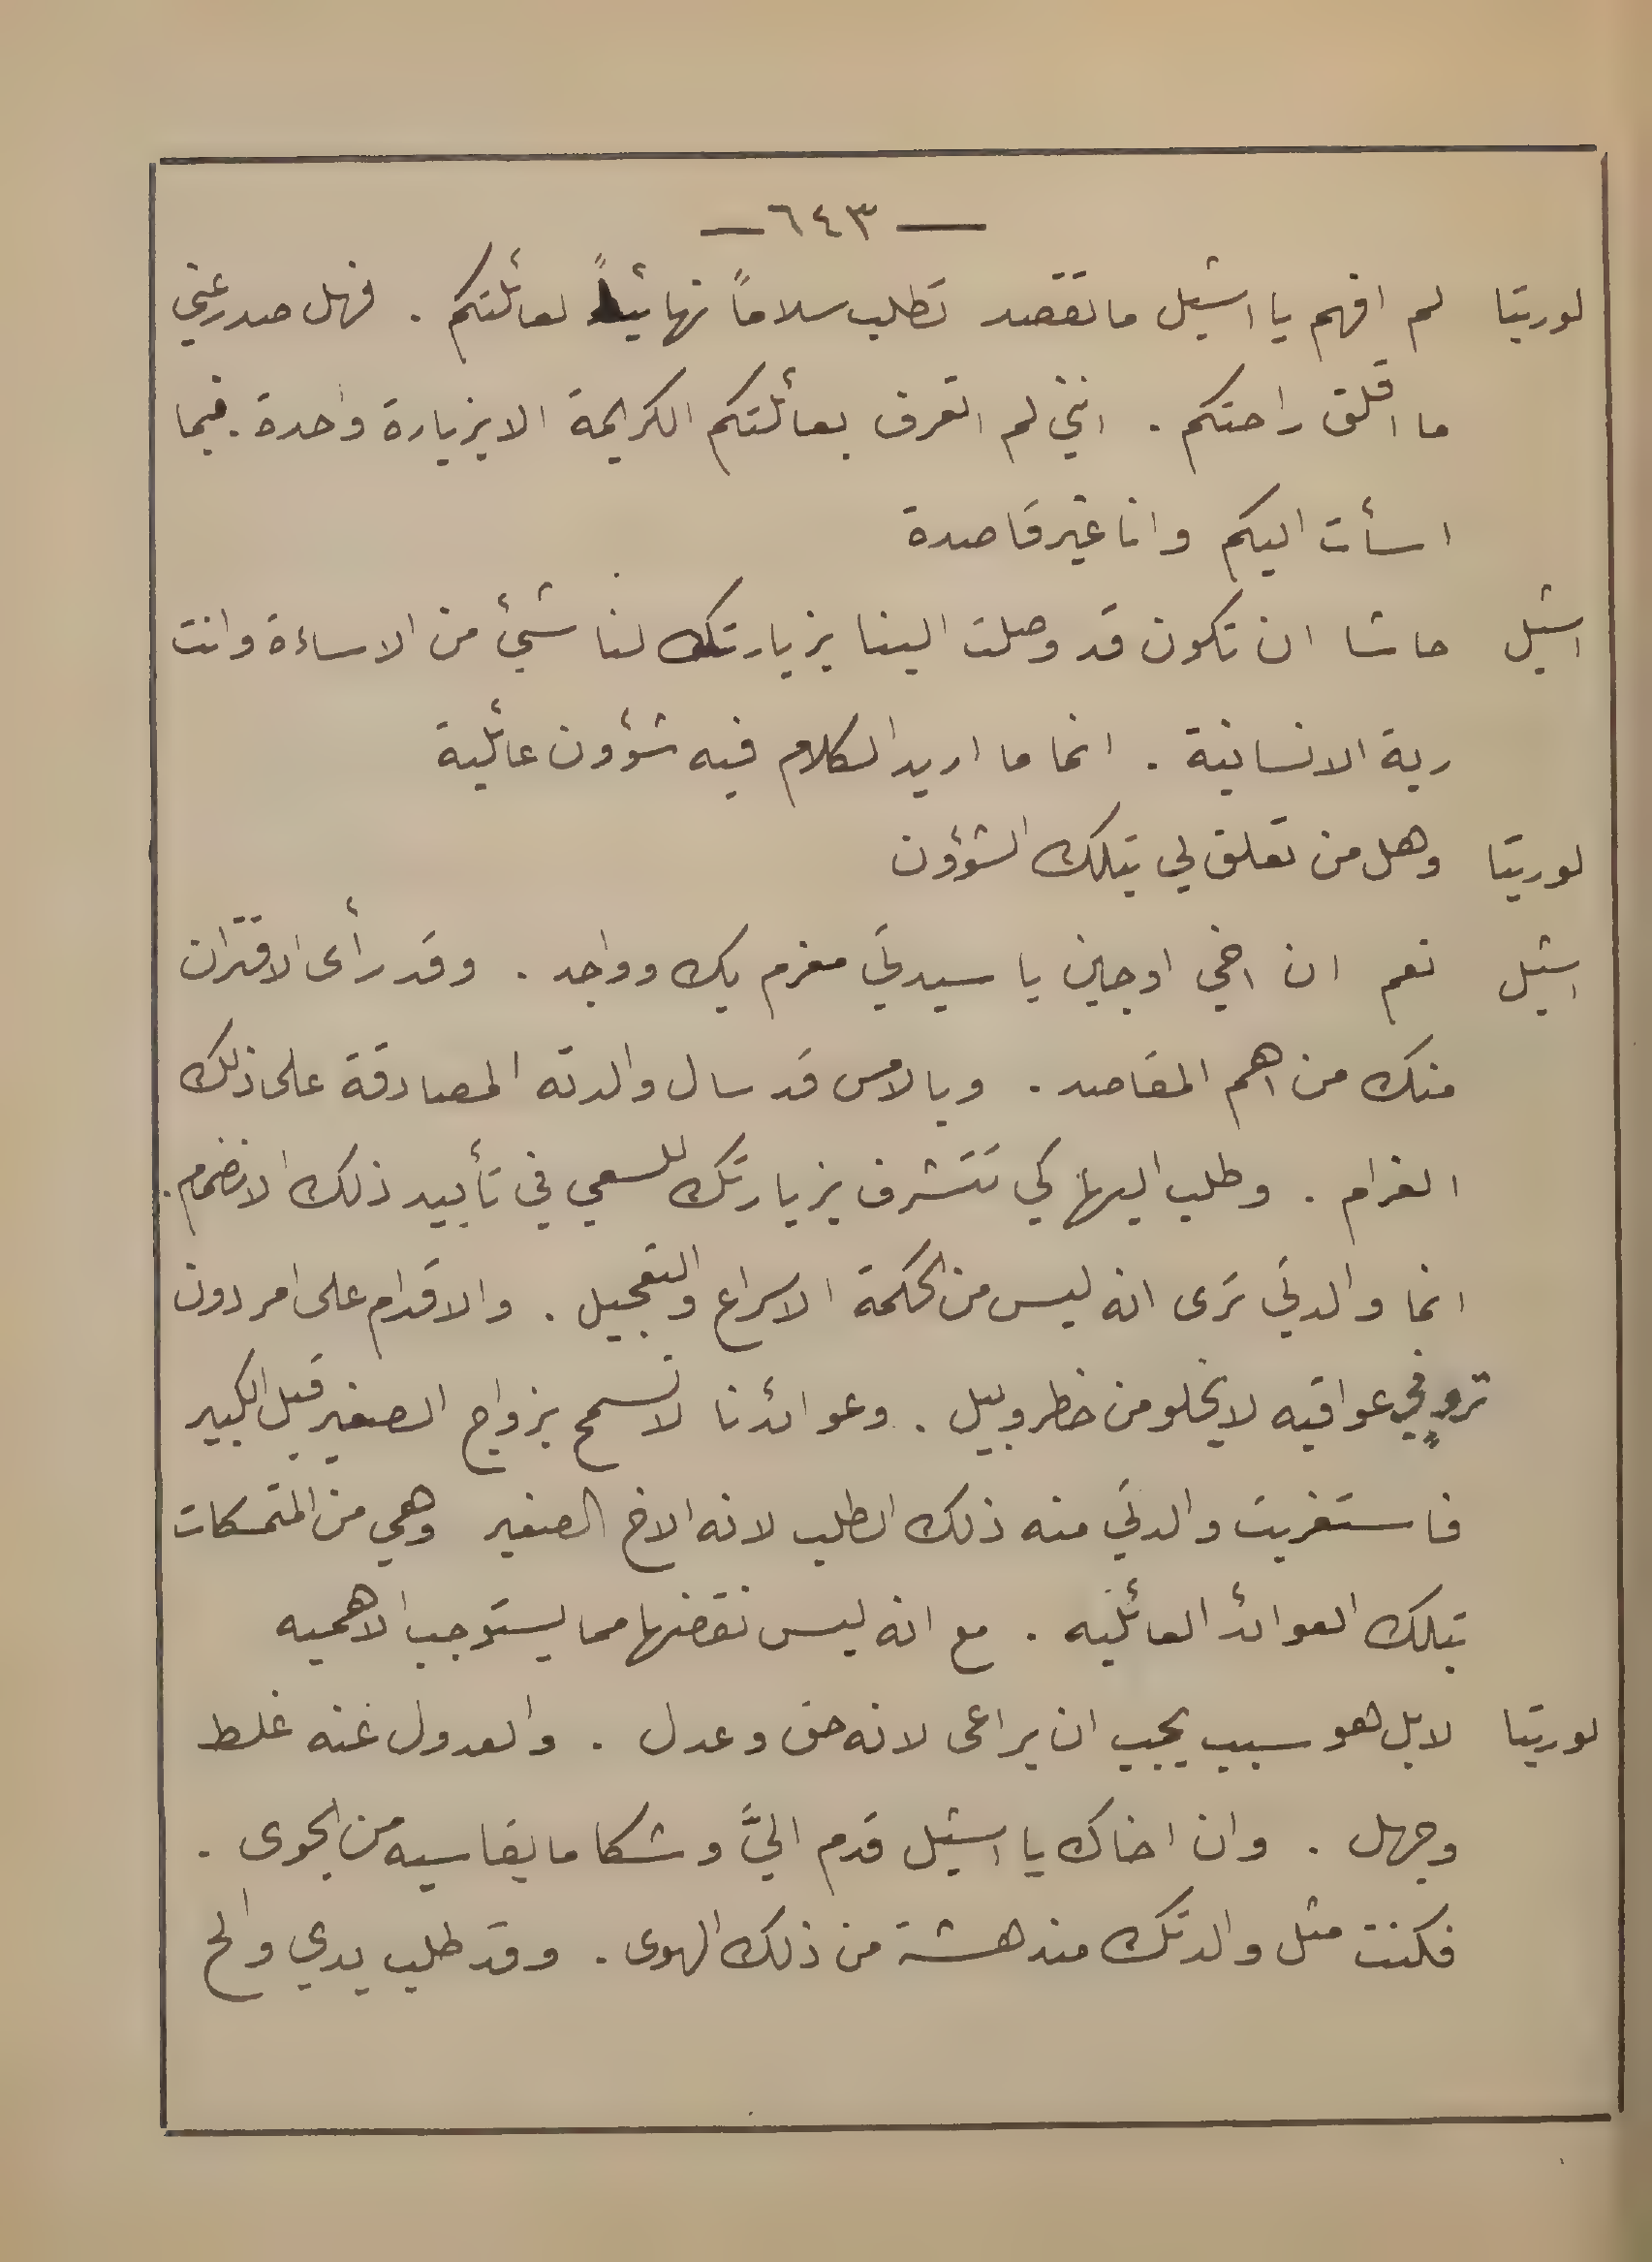 — ٦٤٣ —
لوريتا لم افهم يا استيل ما تقصد تطلب سلاماً نهائياً لعائلتكم . فهل صدر عني
ما اقلق راحتكم . انني لم اتعرف بعائلتكم الكريمة الا بزيارة واحدة . فبما
اسأت اليكم وانا غير قاصدة
استيل حاشا ان تكون قد وصلت الينا بزيارتك لنا شئ من الاساءة وانت
ربة الانسانية . انما ما اريد الكلام فيه شؤون عائلية
لوريتا وهل من تعلق لي بتلك الشؤون
استيل نعم ان اخي اوجين يا سيدتي مغرم بك وواجد . وقد رأى الاقتران
منك من اهم المقاصد . وبالامس قد سال والدته المصادقة على ذلك
الغرام . وطلب اليها كي تتشرف بزيارتك للسعي في تأييد ذلك الانضمام .
انما والدتي ترى انه ليس من الحكمة الاسراع والتعجيل . والاقدام على امر دون
تروٍ في عواقبه لا يخلو من خطر وبيل . وعوائدنا لا تسمح بزواج الصغير قبل الكبير
فاستغربت والدتي منه ذلك الطلب لانه الاخ الصغير وهي من المتمسكات
بتلك العوائد العائليه . مع انه ليس نقضها مما يستوجب الاهميه
لوريتا لا بل هو سبب يجب ان يراعى لانه حق وعدل . والعدول عنه غلط
وجهل . وان اخاك يا استيل قدم اليَّ وشكا ما يقاسيه من الجوى .
فكنت مثل والدتك مندهشة من ذلك الهوى . وقد طلب يدي والح